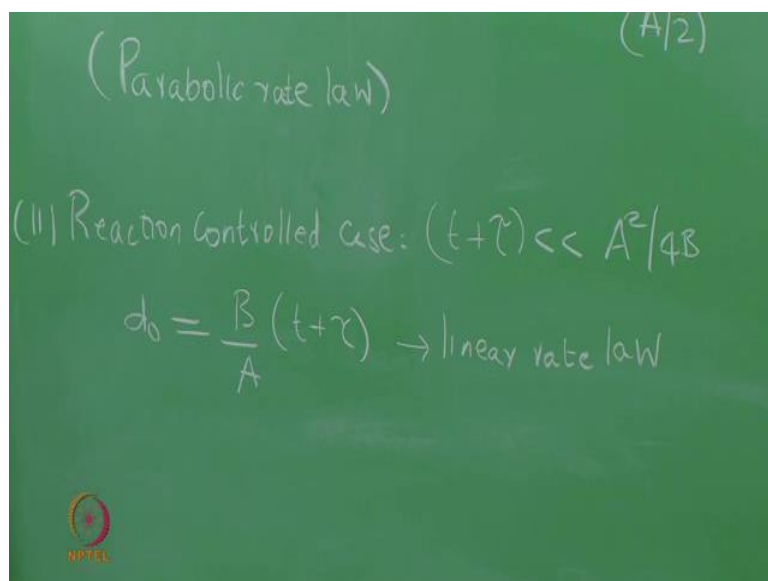 (A/2)
(Parabolic rate law)
(II) Reaction Controlled case: (t+τ) << A²/4B
d₀ = B/A (t+τ) → linear rate law
NPTEL